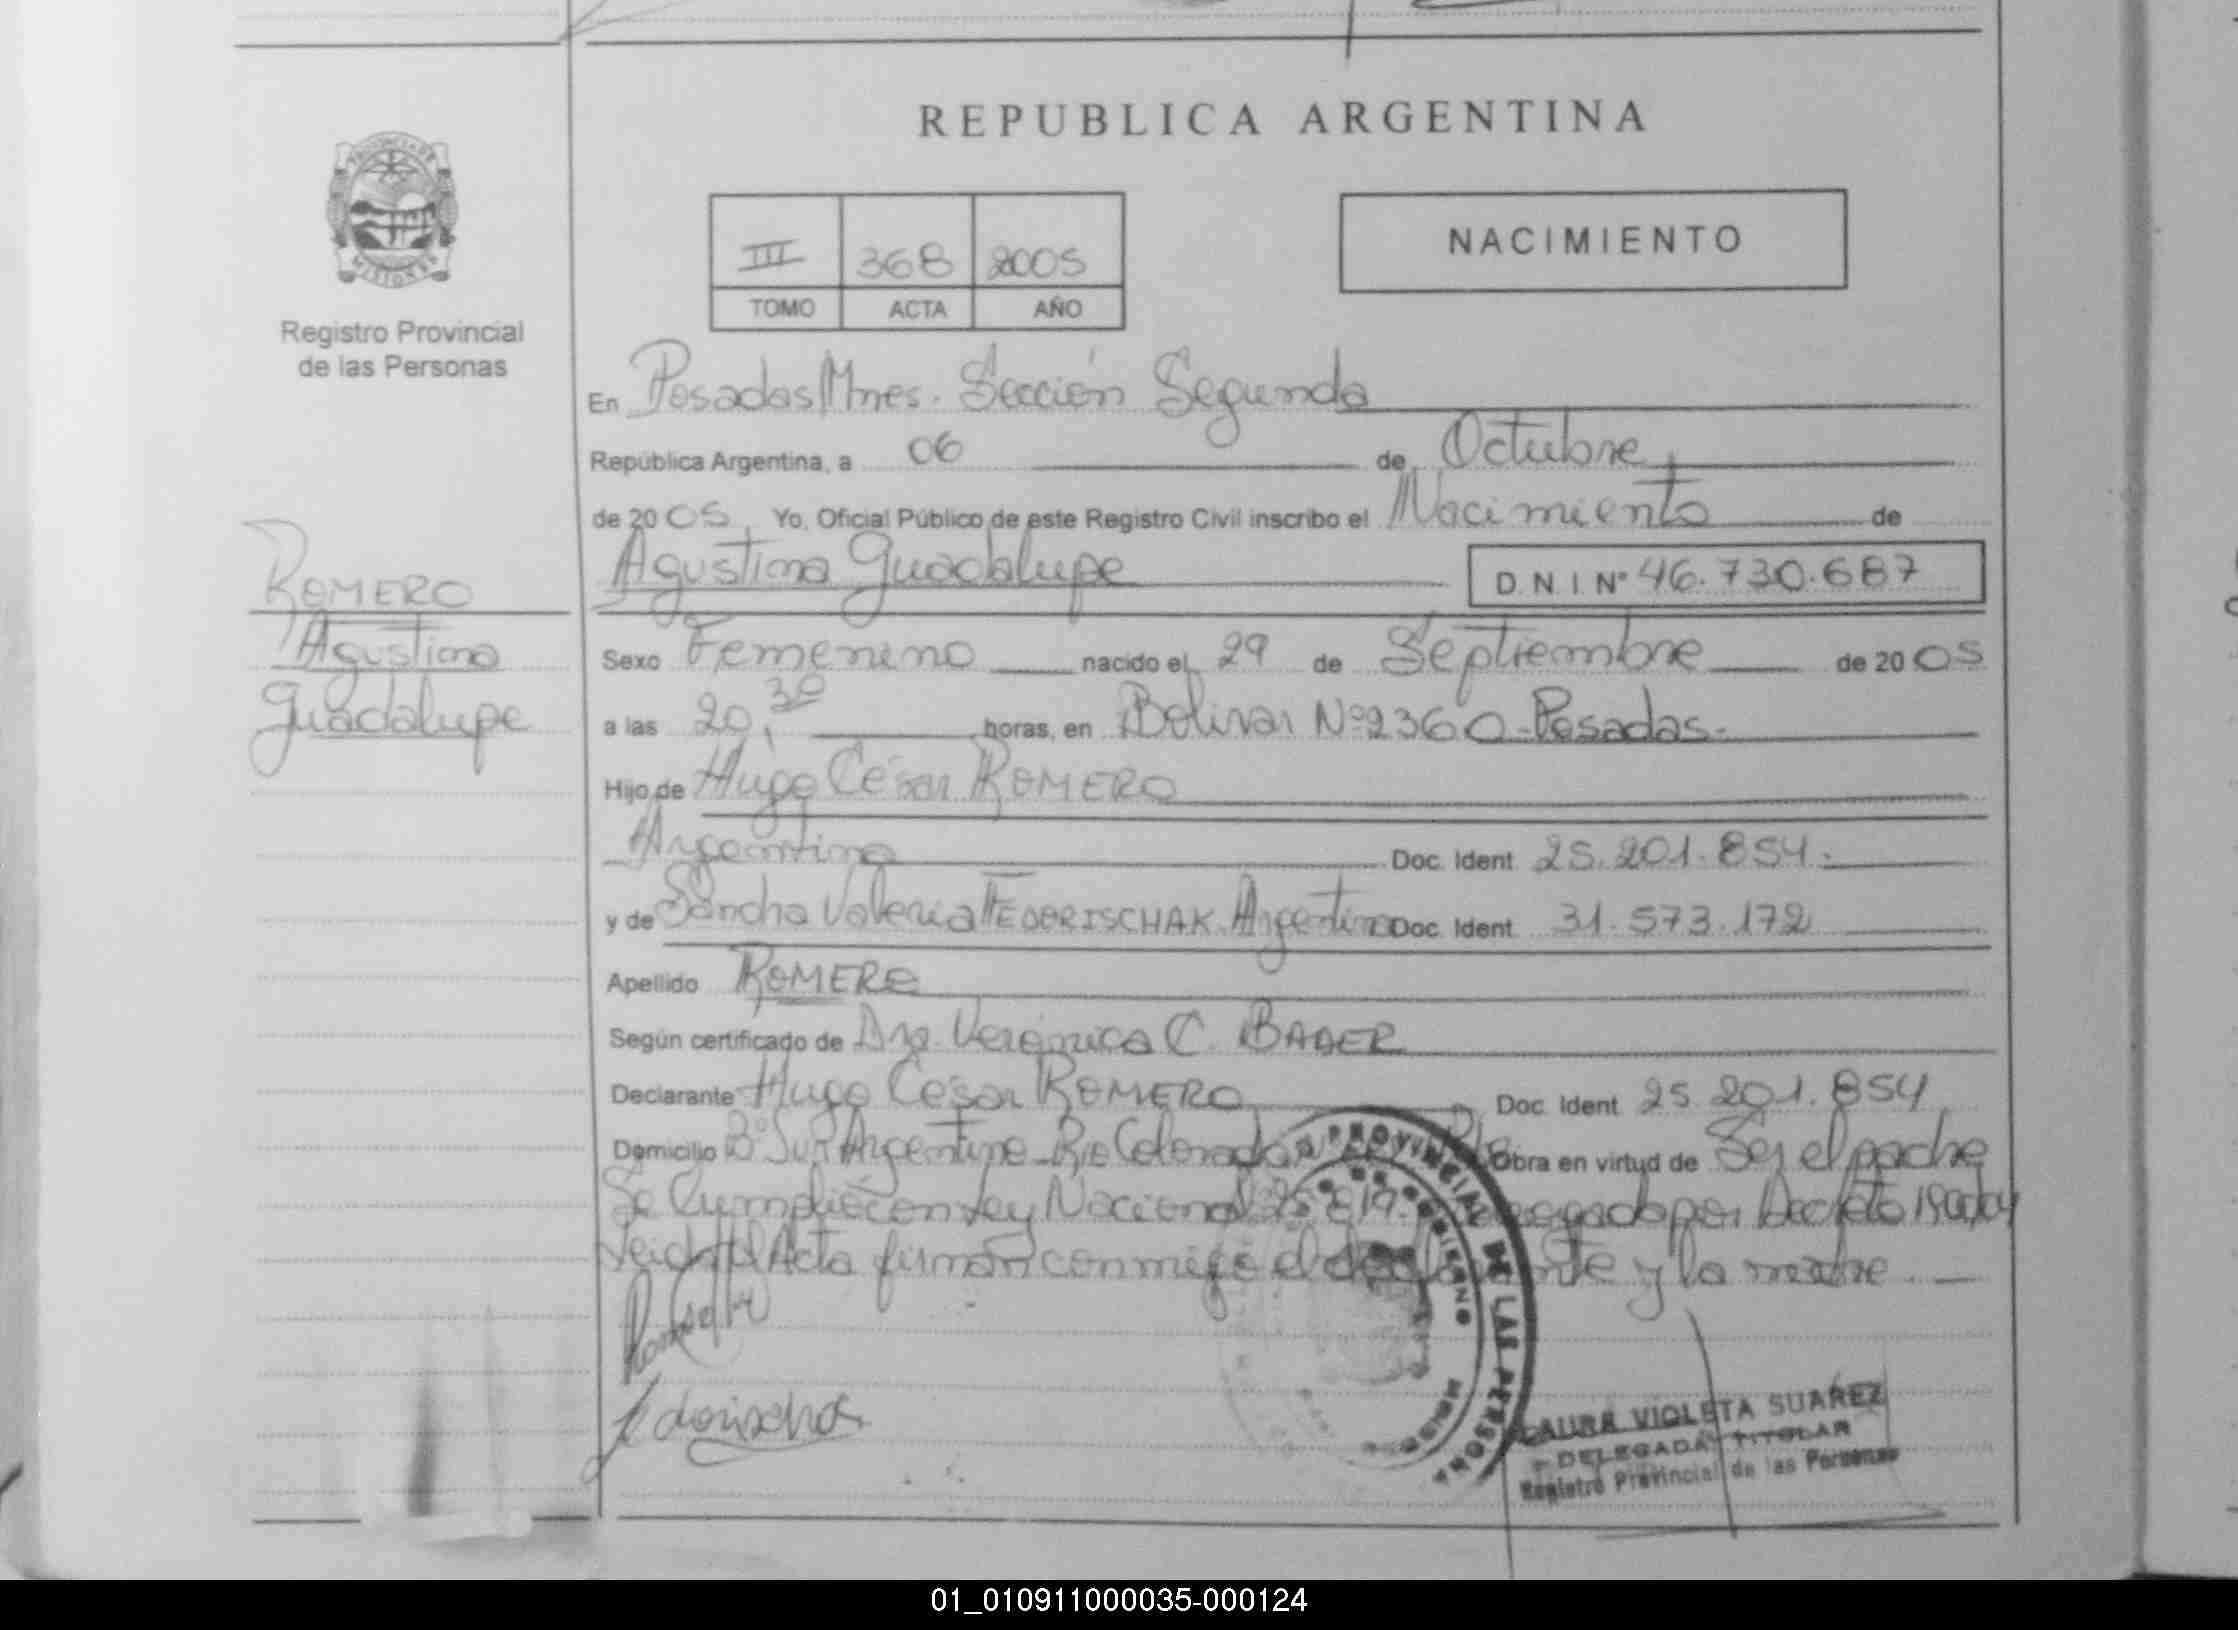 REPUBLICA ARGENTINA
PROVINCIA DE
MISIONES
Registro Provincial
de las Personas
III 368 2005
TOMO ACTA AÑO
NACIMIENTO
En Posadas Mnes. Sección Segunda
República Argentina, a 06 de Octubre
de 2005, Yo, Oficial Público de este Registro Civil inscribo el Nacimiento de
Agustina Guadalupe D.N.I Nº 46.730.687
ROMERO
Agustina
Guadalupe
Sexo Femenino nacido el 29 de Septiembre de 2005
a las 20,30 horas, en Bolivar Nº 2360 - Posadas -
Hijo de Hugo César ROMERO
Argentino Doc. Ident. 25.201.854.
y de Sandra Valeria FEDORISCHAK Argentina Doc. Ident. 31.573.172
Apellido ROMERO
Según certificado de Dra. Verónica C. BADER
Declarante Hugo César ROMERO Doc. Ident. 25.201.854
Domicilio Bº Sur Argentino Rio Colorado Obra en virtud de Ser el padre
Se Cumplió con Ley Nacional por Decreto
Leída el Acta firman conmigo el y la madre.
REGISTRO PROVINCIAL DE LAS PERSONAS
LAURA VIOLETA SUAREZ
DELEGADA TITULAR
Registro Provincial de las Personas
01_010911000035-000124